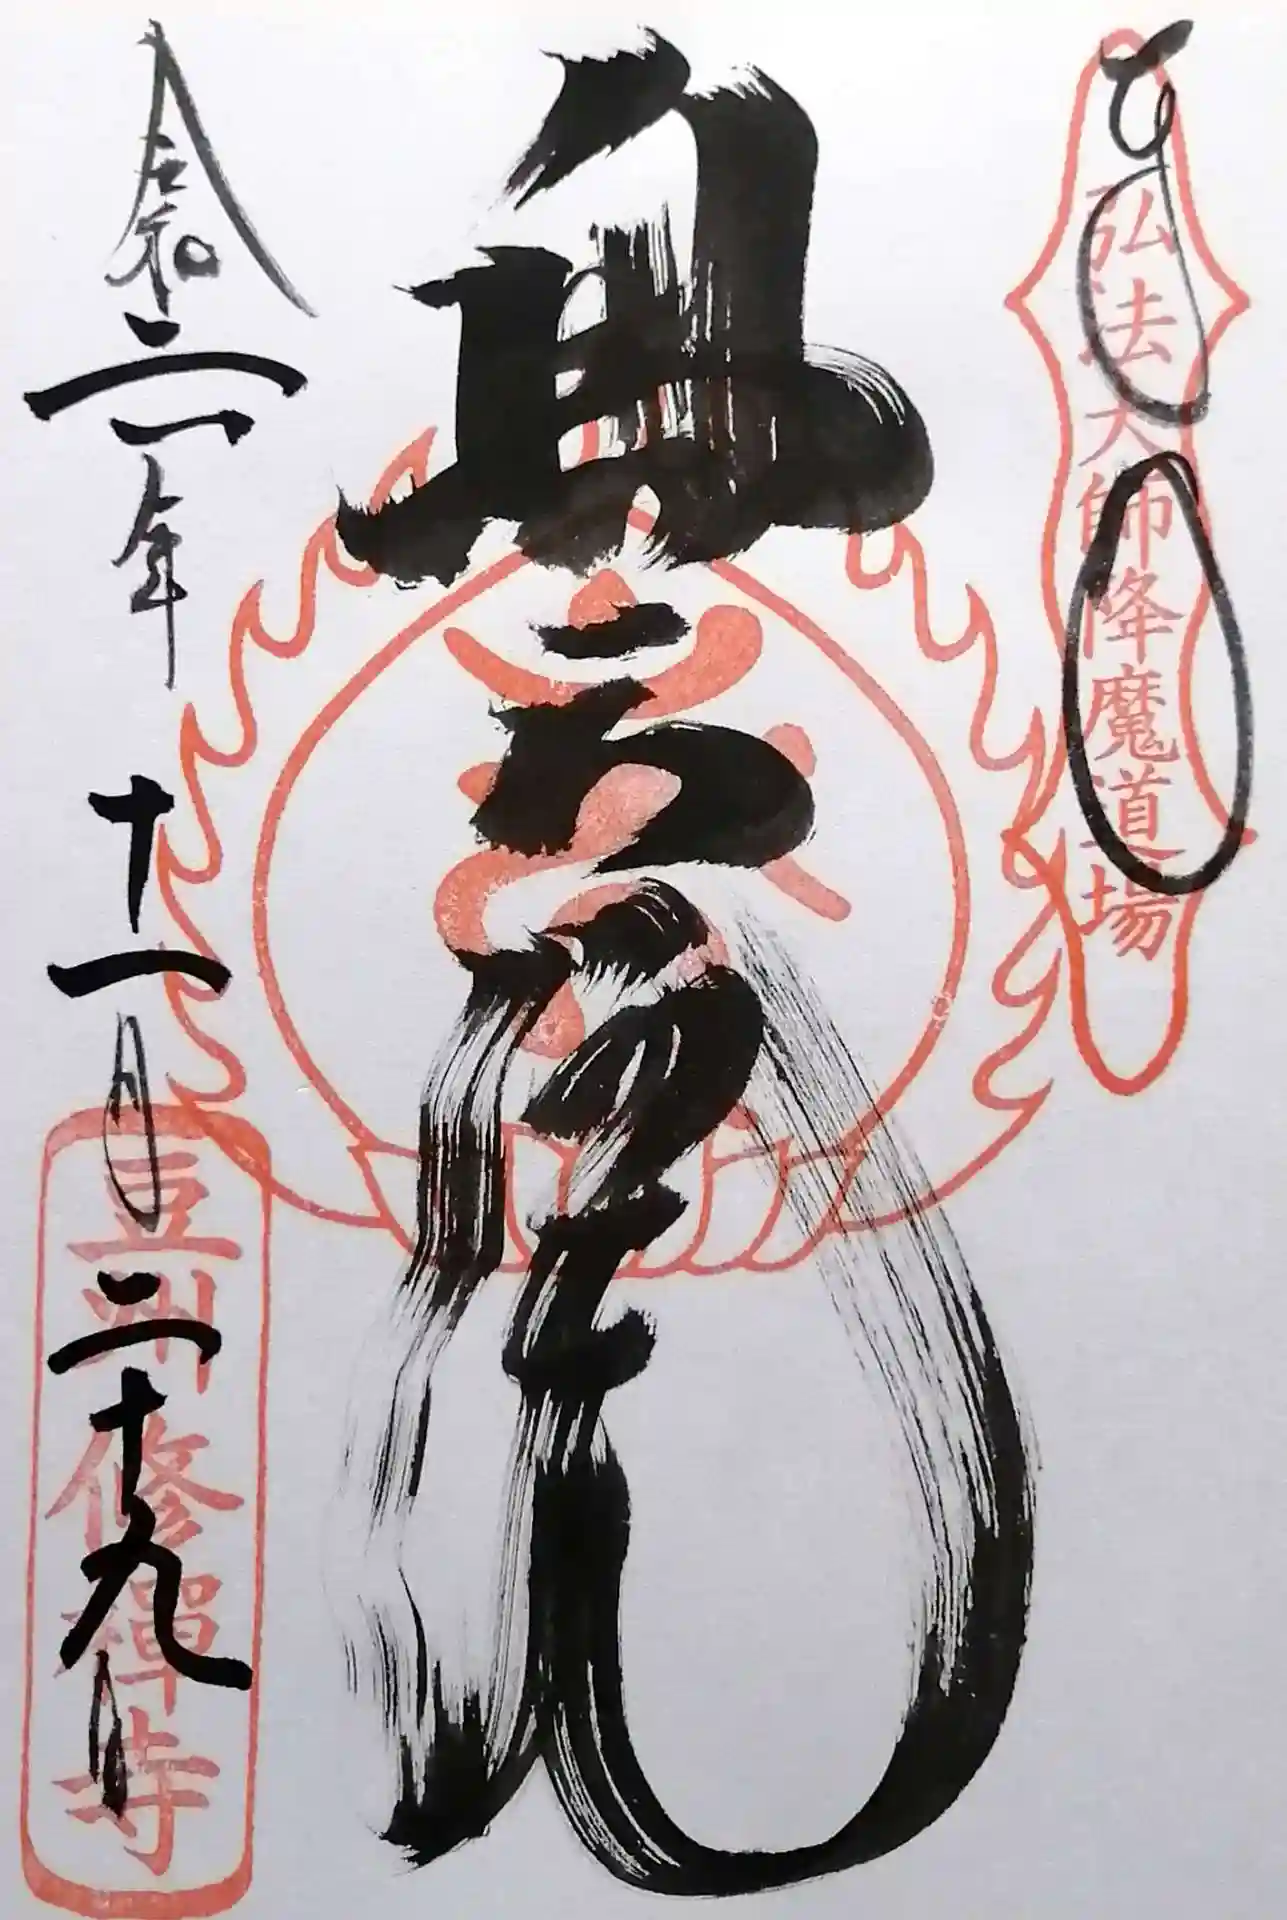 奉拝
弘法大師降魔道場
奥之院
令和二年十一月二十九日
豆州修禪寺